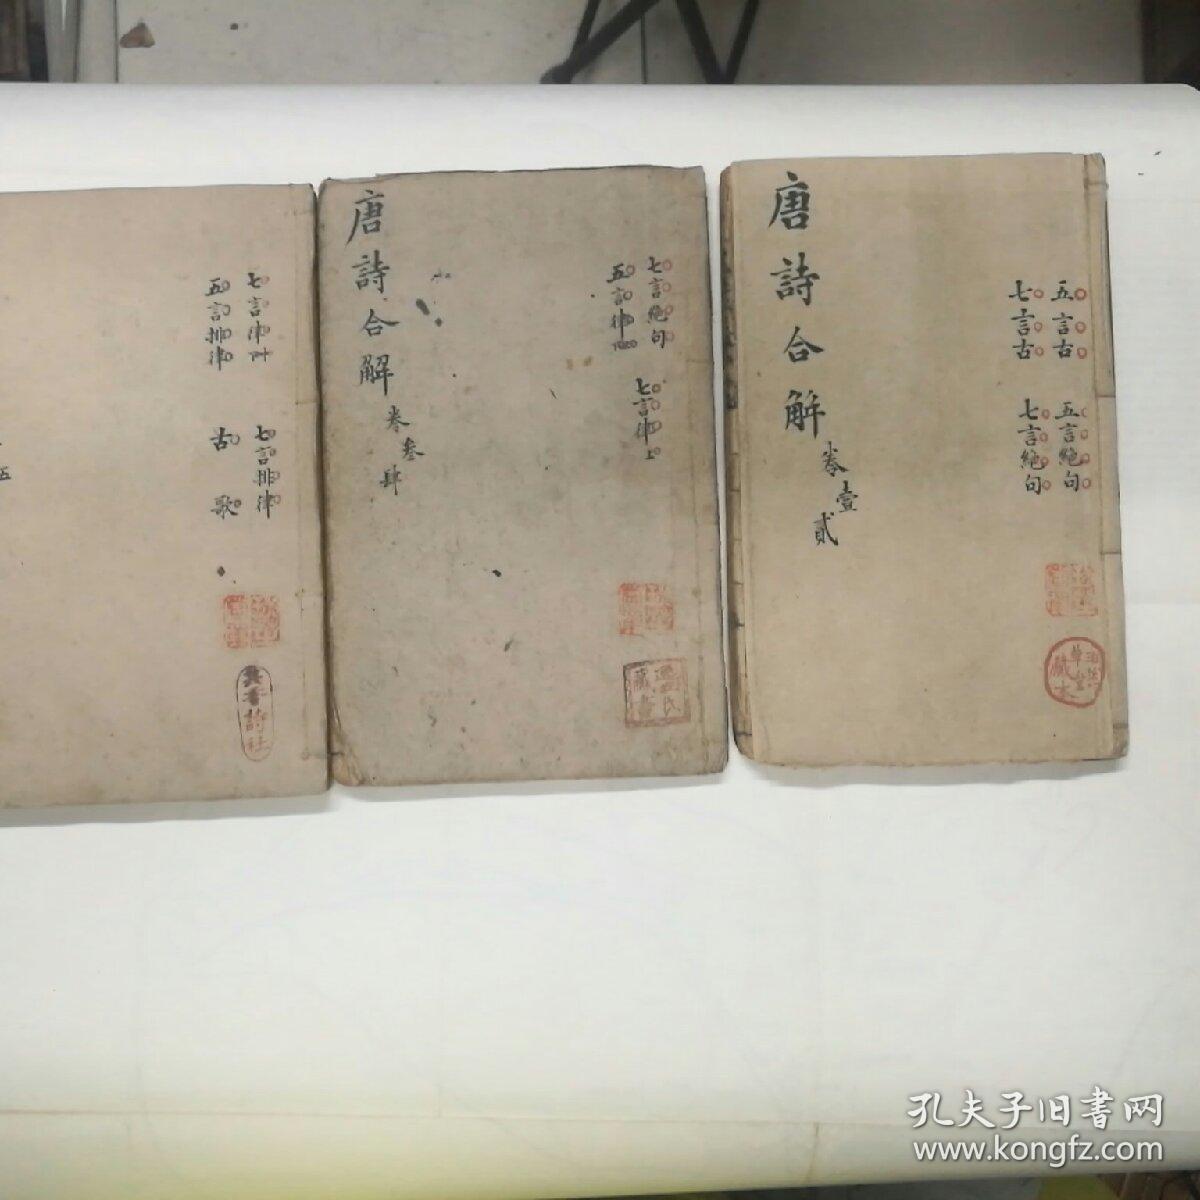 唐詩合解
卷壹貳
五言古
七言古
五言絶句
七言絶句
唐詩合解
卷叁肆
七言絶句
五言律
七言律上
七言律
五言排律
七言排律
古歌
五
藏書
詩社
孔夫子旧书网
www.kongfz.com